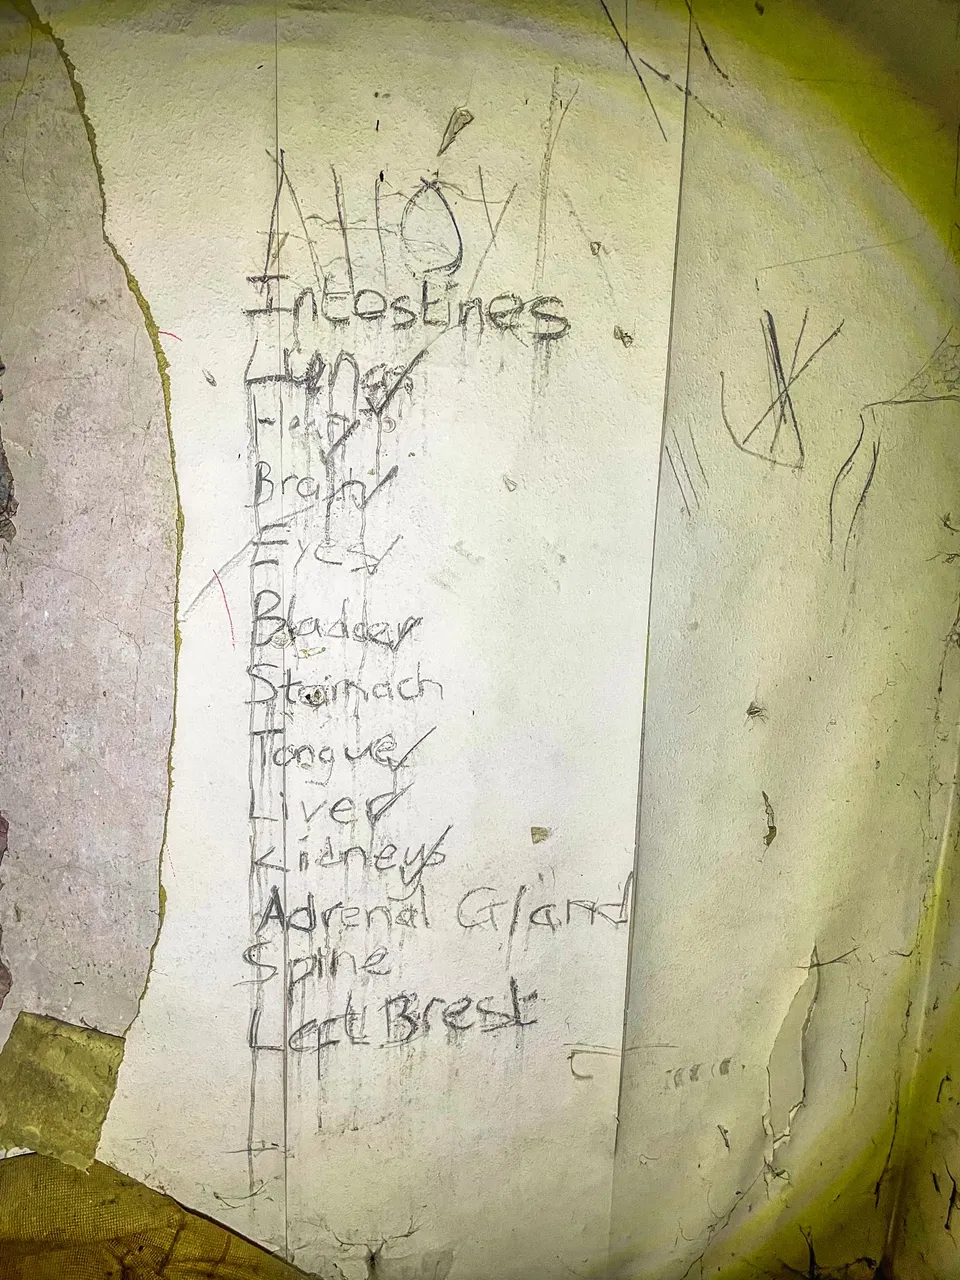 Intestines
Lungs
Heart
Brain
Eyes
Bladder
Stomach
Tongue
Liver
Kidneys
Adrenal Gland
Spine
Left Brest